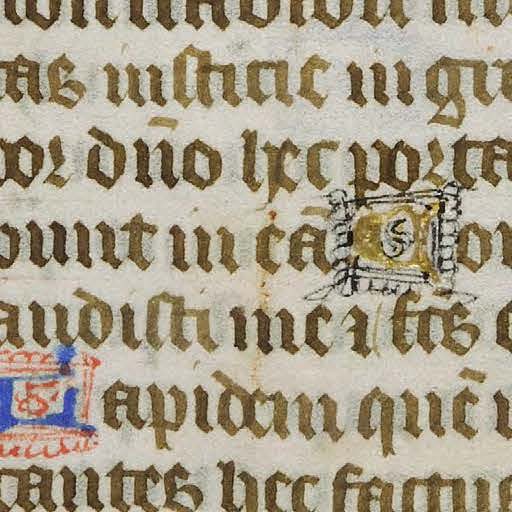 tas iusticie in gr
bor dn̄o hec porta
bunt in eā C on
audisti me ⁊ fc̄s
L apidem quē
cantes hec factus